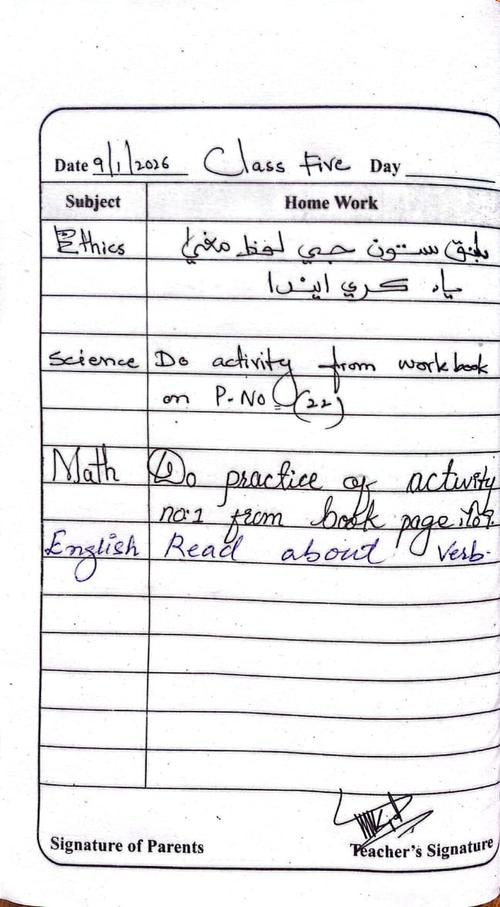 Date 9/1/2026 Class Five Day
Subject Home Work
Ethics سبق ستون جي لفظ معنيٰ
ياد ڪري ايندا
Science Do activity from workbook
on P-No (22)
Math Do practice of activity
no:1 from book page
English Read about Verb.
Signature of Parents Teacher's Signature